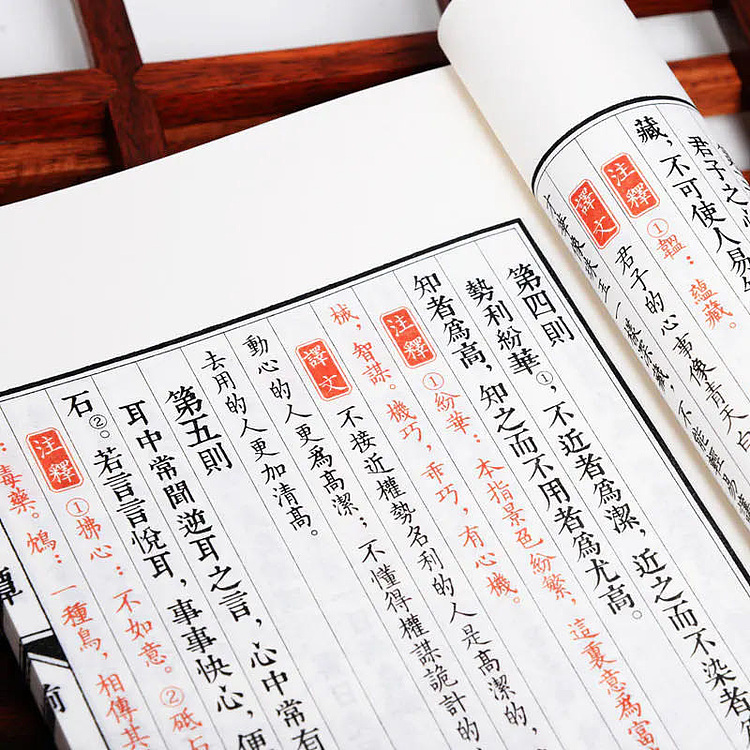 君子之心
藏，不可使人易
注釋 ①韞：蘊藏。
譯文 君子的心事像青天白
第四則
勢利紛華①，不近者爲潔，近之而不染者
知者爲高，知之而不用者爲尤高。
注釋 ①紛華：本指景色紛繁，這裏意爲富
械，智謀。機巧，乖巧，有心機。
譯文 不接近權勢名利的人是高潔的，
動心的人更爲高潔；不懂得權謀詭計的
去用的人更加清高。
第五則
耳中常聞逆耳之言，心中常有
石②。若言言悅耳，事事快心，便
注釋 ①拂心：不如意。②砥
：毒藥。鴆：一種鳥，相傳其